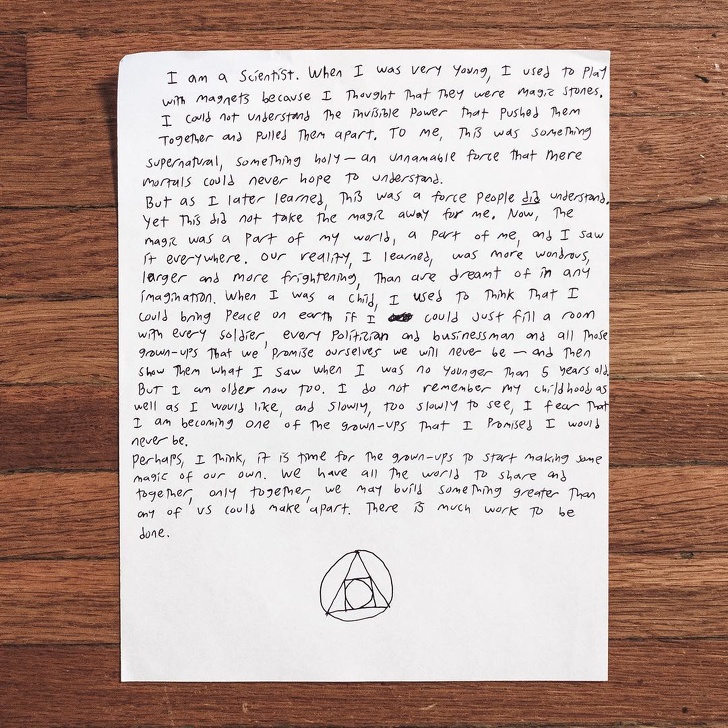 I am a Scientist. When I was very young, I used to play
with magnets because I thought that they were magic stones.
I could not understand the invisible power that pushed them
together and pulled them apart. To me, this was something
supernatural, something holy — an unnamable force that mere
mortals could never hope to understand.
But as I later learned, this was a force people did understand.
Yet this did not take the magic away for me. Now, the
magic was a part of my world, a part of me, and I saw
it everywhere. Our reality, I learned, was more wondrous,
larger and more frightening, than are dreamt of in any
imagination. When I was a child, I used to think that I
could bring peace on earth if I could just fill a room
with every soldier, every politician and businessman and all those
grown-ups that we promise ourselves we will never be — and then
show them what I saw when I was no younger than 5 years old.
But I am older now too. I do not remember my childhood as
well as I would like, and slowly, too slowly to see, I fear that
I am becoming one of the grown-ups that I promised I would
never be.
Perhaps, I think, it is time for the grown-ups to start making some
magic of our own. We have all the world to share and
together, only together, we may build something greater than
any of us could make apart. There is much work to be
done.